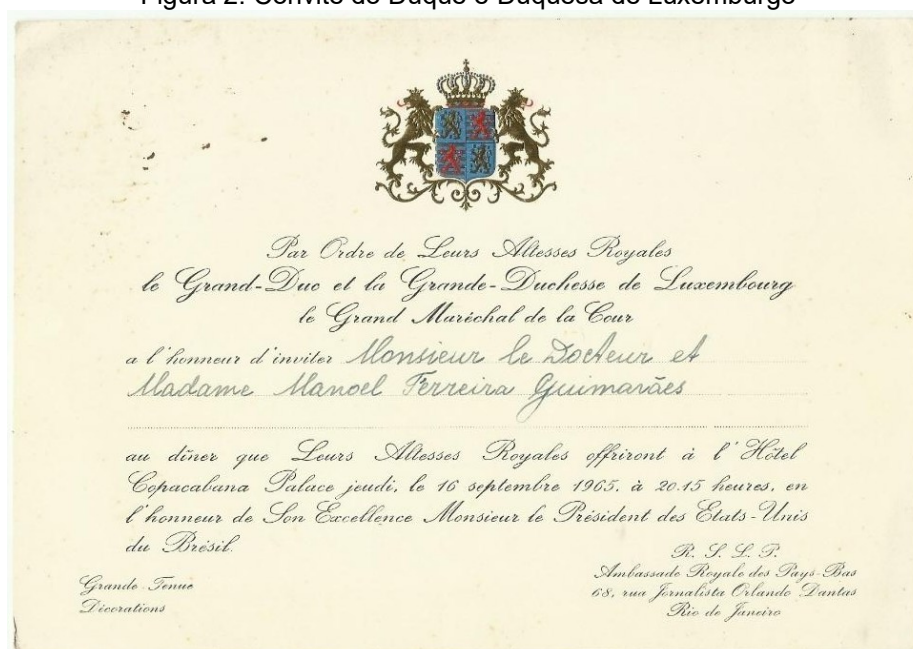 Figura 2: Convite do Duque e Duquesa de Luxemburgo
Par Ordre de Leurs Altesses Royales
le Grand-Duc et la Grande-Duchesse de Luxembourg
le Grand Maréchal de la Cour
a l'honneur d'inviter Monsieur le Docteur et
Madame Manoel Ferreira Guimarães
au dîner que Leurs Altesses Royales offriront à l'Hôtel
Copacabana Palace jeudi, le 16 septembre 1965, à 20.15 heures, en
l'honneur de Son Excellence Monsieur le Président des Etats-Unis
du Brésil.
R. S. L. P.
Ambassade Royale des Pays-Bas
68, rua Jornalista Orlando Dantas
Rio de Janeiro
Grande Tenue
Décorations